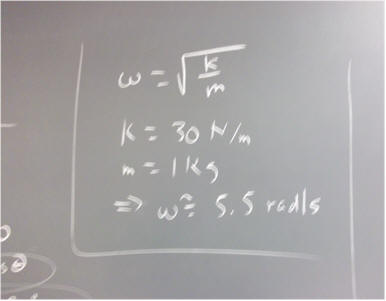 ω = √k/m
K = 30 N/m
m = 1 kg
⇒ ω ≈ 5.5 rad/s